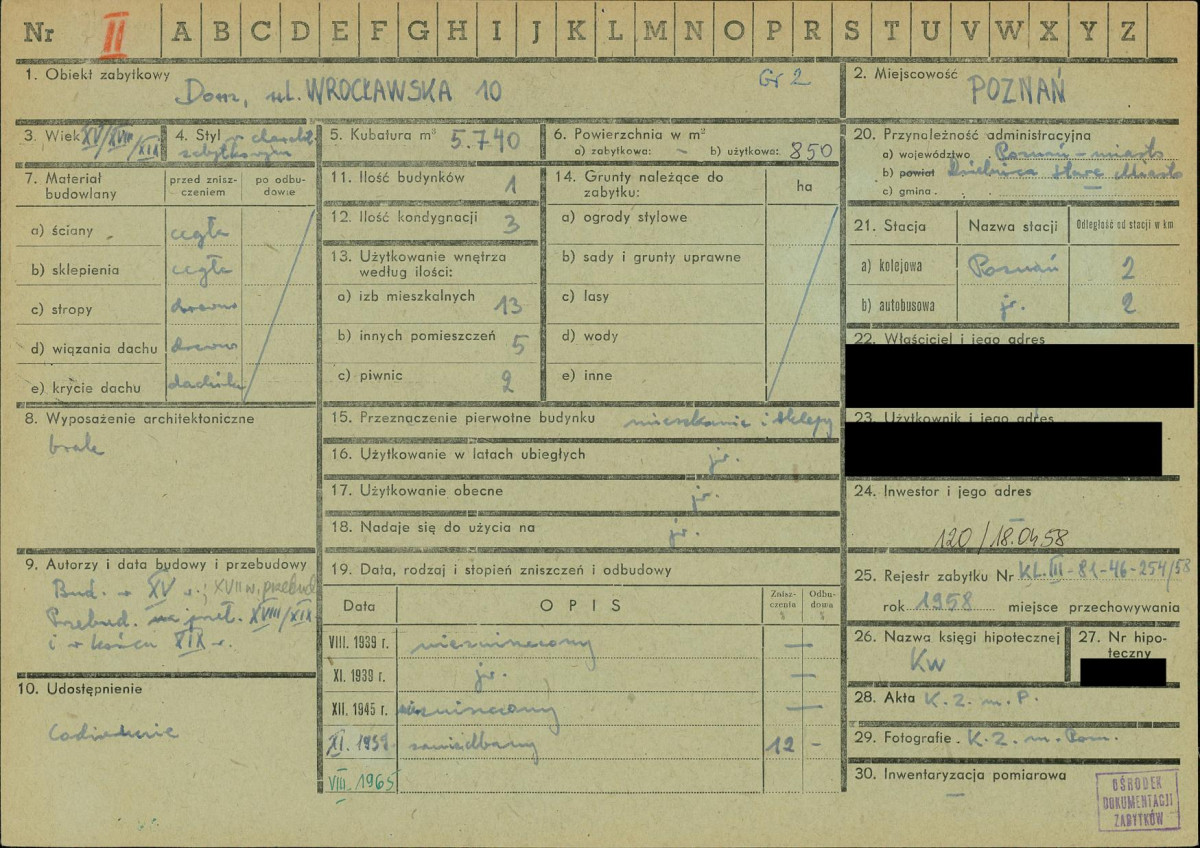 Nr II A B C D E F G H I J K L M N O P R S T U V W X Y Z
1. Obiekt zabytkowy
Dom, ul. WROCŁAWSKA 10 Gr 2
2. Miejscowość
POZNAŃ
3. Wiek XV/XVIII/XIX
4. Styl
zabytkowym
5. Kubatura m³ 5.740
6. Powierzchnia w m²
a) zabytkowa: - b) użytkowa: 850
7. Materiał budowlany
przed znisz-
czeniem
po odbu-
dowie
a) ściany cegła
b) sklepienia cegła
c) stropy drewno
d) wiązania dachu drewno
e) krycie dachu dachówka
8. Wyposażenie architektoniczne
brak
9. Autorzy i data budowy i przebudowy
Bud. w XV w.; XVII w. przebud.
Przebud. na przeł. XVIII/XIX
i w końcu XIX w.
10. Udostępnienie
Codziennie
11. Ilość budynków 1
12. Ilość kondygnacji 3
13. Użytkowanie wnętrza
według ilości:
a) izb mieszkalnych 13
b) innych pomieszczeń 5
c) piwnic 2
14. Grunty należące do
zabytku:
ha
a) ogrody stylowe
b) sady i grunty uprawne
c) lasy
d) wody
e) inne
15. Przeznaczenie pierwotne budynku mieszkanie i sklepy
16. Użytkowanie w latach ubiegłych jw.
17. Użytkowanie obecne jw.
18. Nadaje się do użycia na jw.
19. Data, rodzaj i stopień zniszczeń i odbudowy
Data
OPIS
Znisz-
czenia
Odbu-
dowa
VIII. 1939 r. niezniszczony —
XI. 1939 r. jw. —
XII. 1945 r. niezniszczony —
XI. 1959 zaniedbany 12 -
VIII. 1965
20. Przynależność administracyjna
a) województwo Poznań - miasto
b) powiat Dzielnica Stare Miasto
c) gmina . —
21. Stacja
Nazwa stacji
Odległość od stacji w km
a) kolejowa Poznań 2
b) autobusowa jw. 2
22. Właściciel i jego adres
23. Użytkownik i jego adres
24. Inwestor i jego adres
—
120/18.04.58
25. Rejestr zabytku Nr KL.III-81-46-254/58
rok 1958 miejsce przechowywania
26. Nazwa księgi hipotecznej
KW
27. Nr hipo-
teczny
28. Akta K. Z. m. P.
29. Fotografie. K. Z. m. Pozn.
30. Inwentaryzacja pomiarowa
—
OŚRODEK
DOKUMENTACJI
ZABYTKÓW